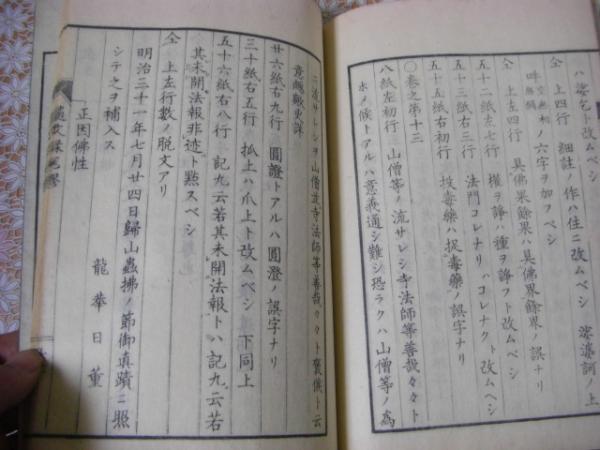 ハ娑包ト改ムベシ　娑婆訶ノ上
仝　上四行　細註ノ作ハ住ニ改ムベシ
ノ六字ヲ加フベシ
仝　上左四行　具佛果餘果ハ具佛果餘界ノ誤ナリ
五十二紙左七行　權ヲ諍ハ種ヲ諍フト改ムベシ
五十三紙左三行　法門コレナリハコレナクト改ムベシ
五十五紙右初行　扠毒藥ハ捉毒藥ノ誤字ナリ
〇卷之第十三
八紙左初行　山僧等ノ流サレシ寺法師等善哉々々ト
ホメ候トアルハ意義通シ難シ恐ラクハ山僧等ノ爲
ニ流サレシヲ山僧並寺法師等善哉々々ト褒儀ト云
意歟歟更詳
廿六紙右九行　圓證トアルハ圓澄ノ誤字ナリ
三十紙右五行　抓上ハ爪上ト改ムベシ　下同上
五十六紙右八行　記九云若其未開法報トハ記九云若
其未開法報非迹ト點スベシ
仝　上左行數ノ脫文アリ
明治三十一年七月廿四日歸山蟲拂ノ節御真蹟ニ照
シテ之ヲ補入ス
正因佛性
龍華日董